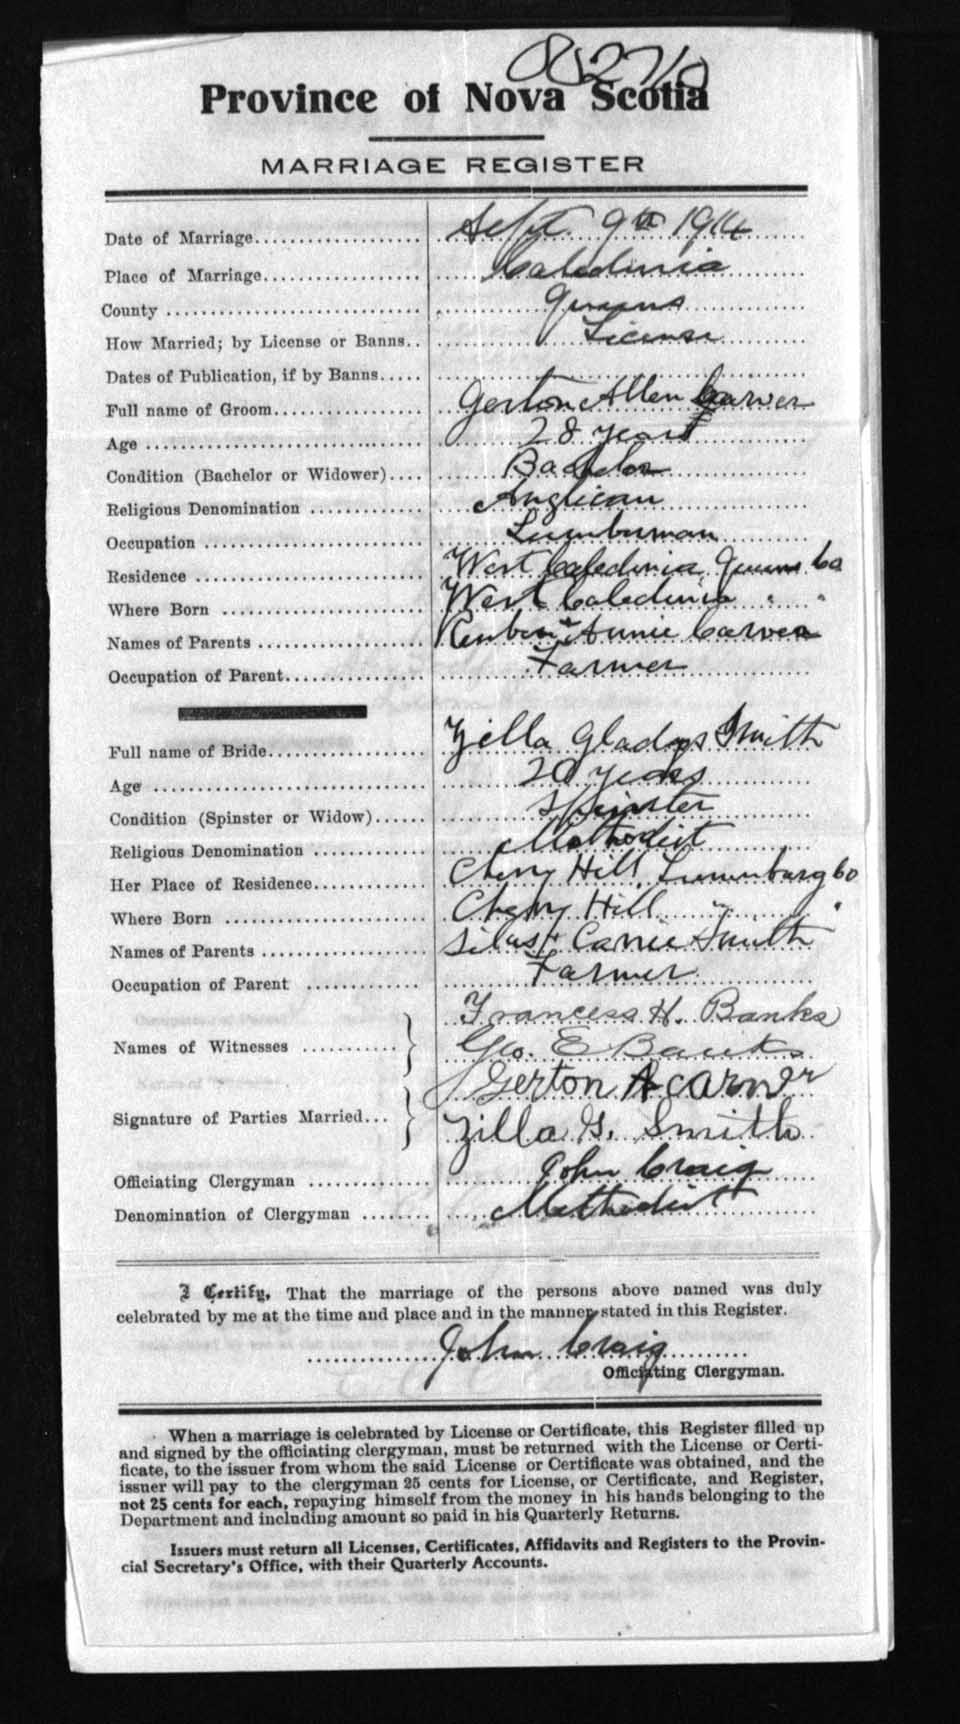 Province of Nova Scotia
MARRIAGE REGISTER
Date of Marriage Sept. 9th 1914
Place of Marriage Caledonia
County Queens
How Married; by License or Banns License
Dates of Publication, if by Banns
Full name of Groom Gerton Allen Carver
Age 28 years
Condition (Bachelor or Widower) Bachelor
Religious Denomination Anglican
Occupation Lumberman
Residence West Caledonia, Queens Co
Where Born West Caledonia " "
Names of Parents Reuben + Annie Carver
Occupation of Parent Farmer
Full name of Bride Zilla Gladys Smith
Age 20 years
Condition (Spinster or Widow) Spinster
Religious Denomination Methodist
Her Place of Residence Cherry Hill, Lunenburg Co
Where Born Cherry Hill " "
Names of Parents Silas + Carrie Smith
Occupation of Parent Farmer
Francess H. Banks
Names of Witnesses
Geo. E Banks
Gerton A carver
Signature of Parties Married
Zilla G. Smith
Officiating Clergyman John Craig
Denomination of Clergyman Methodist
I Certify, That the marriage of the persons above named was duly
celebrated by me at the time and place and in the manner stated in this Register.
John Craig
Officiating Clergyman.
When a marriage is celebrated by License or Certificate, this Register filled up
and signed by the officiating clergyman, must be returned with the License or Certi-
ficate, to the issuer from whom the said License or Certificate was obtained, and the
issuer will pay to the clergyman 25 cents for License, or Certificate, and Register,
not 25 cents for each, repaying himself from the money in his hands belonging to the
Department and including amount so paid in his Quarterly Returns.
Issuers must return all Licenses, Certificates, Affidavits and Registers to the Provin-
cial Secretary's Office, with their Quarterly Accounts.